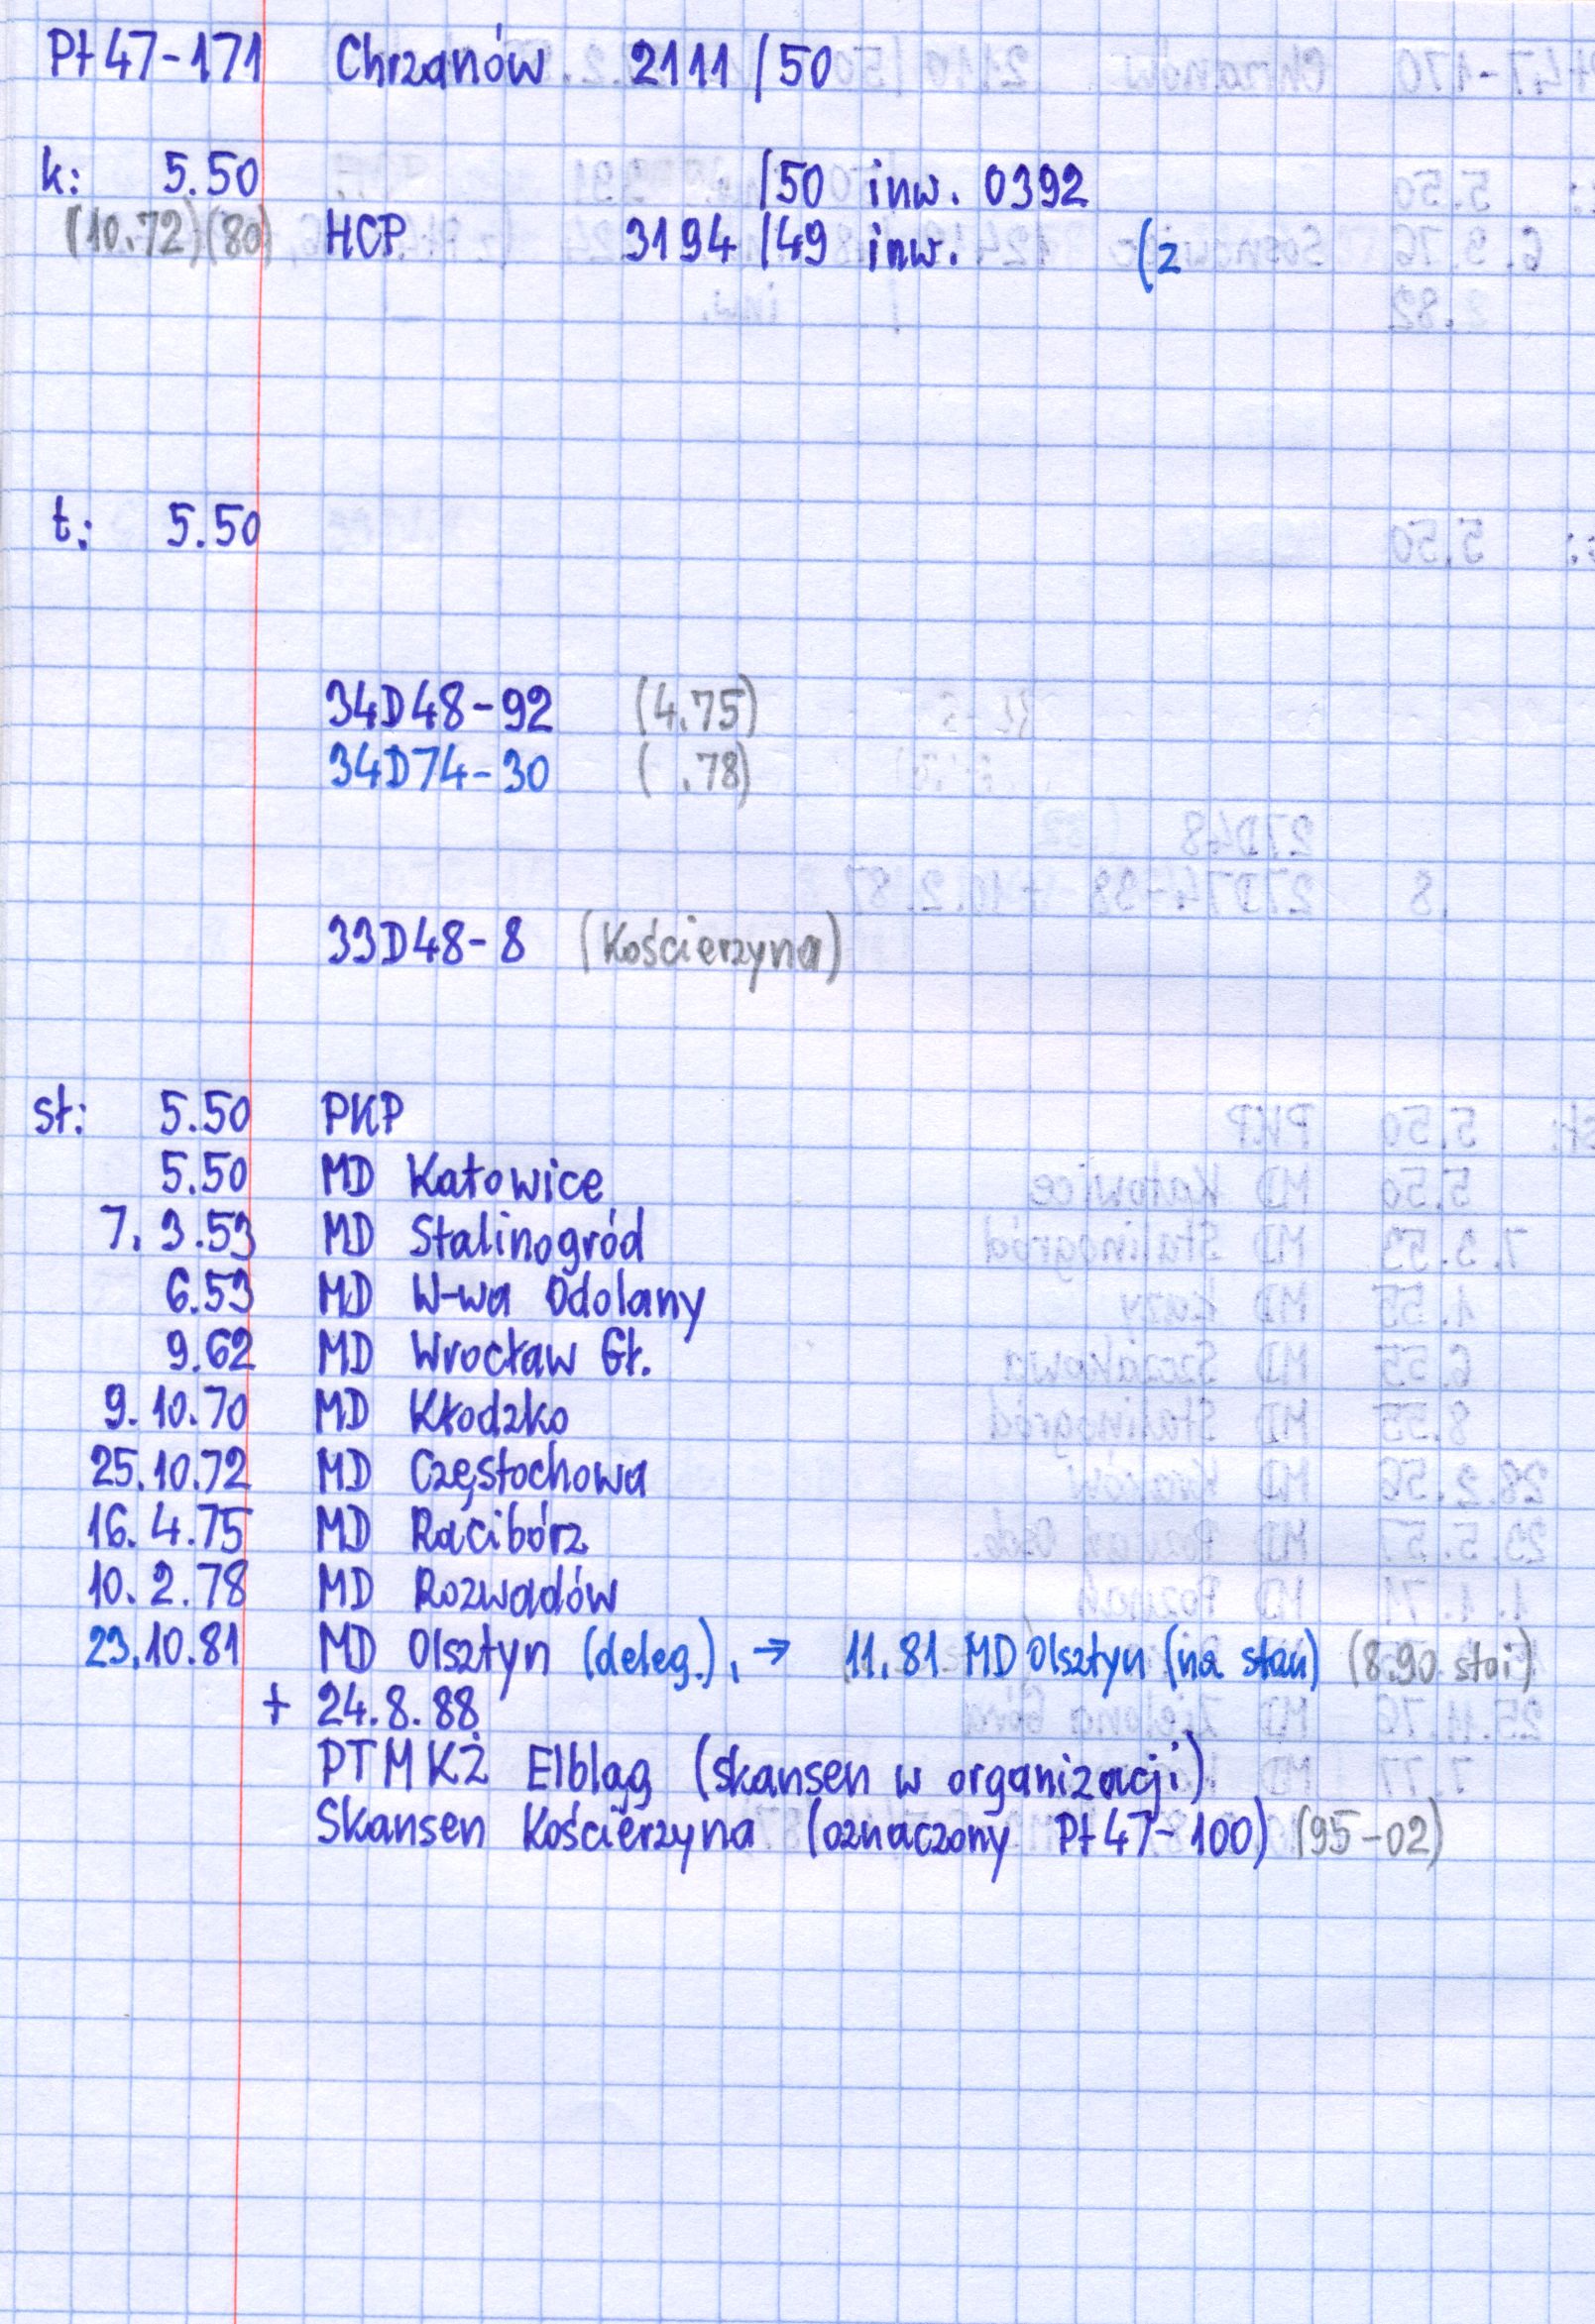 Pt47-171 Chrzanów 2111/50
k: 5.50 /50 inw. 0392
(10.72)(80) HCP 3194/49 inw. (z
t: 5.50
34D48-92 (4.75)
34D74-30 ( .78)
33D48-8 (Kościerzyna)
sł: 5.50 PKP
5.50 MD Katowice
7. 3.53 MD Stalinogród
6.53 MD W-wa Odolany
9.62 MD Wrocław Gł.
9.10.70 MD Kłodzko
25.10.72 MD Częstochowa
16. 4.75 MD Racibórz
10. 2.78 MD Rozwadów
23.10.81 MD Olsztyn (deleg.), → 11.81 MD Olsztyn (na stan) (8.90 stoi)
+ 24.8.88
PTMKŻ Elbląg (skansen w organizacji)
Skansen Kościerzyna (oznaczony Pt47-100) (95-02)